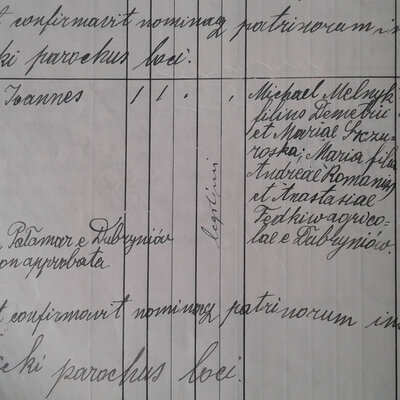 t confirmavit nominaq patrinorum in
ki parochus loci.
Joannes
1 1
legitimi
Michael Melnyk
filius Demetrii
et Mariae Szczu-
roska; Maria filia
Andreae Romaniu
et Anastasiae
Fedkiw agrico-
lae e Dubryniów.
Pałamar e Dubryniów
on approbata.
t confirmavit nominaq patrinorum in
icki parochus loci.